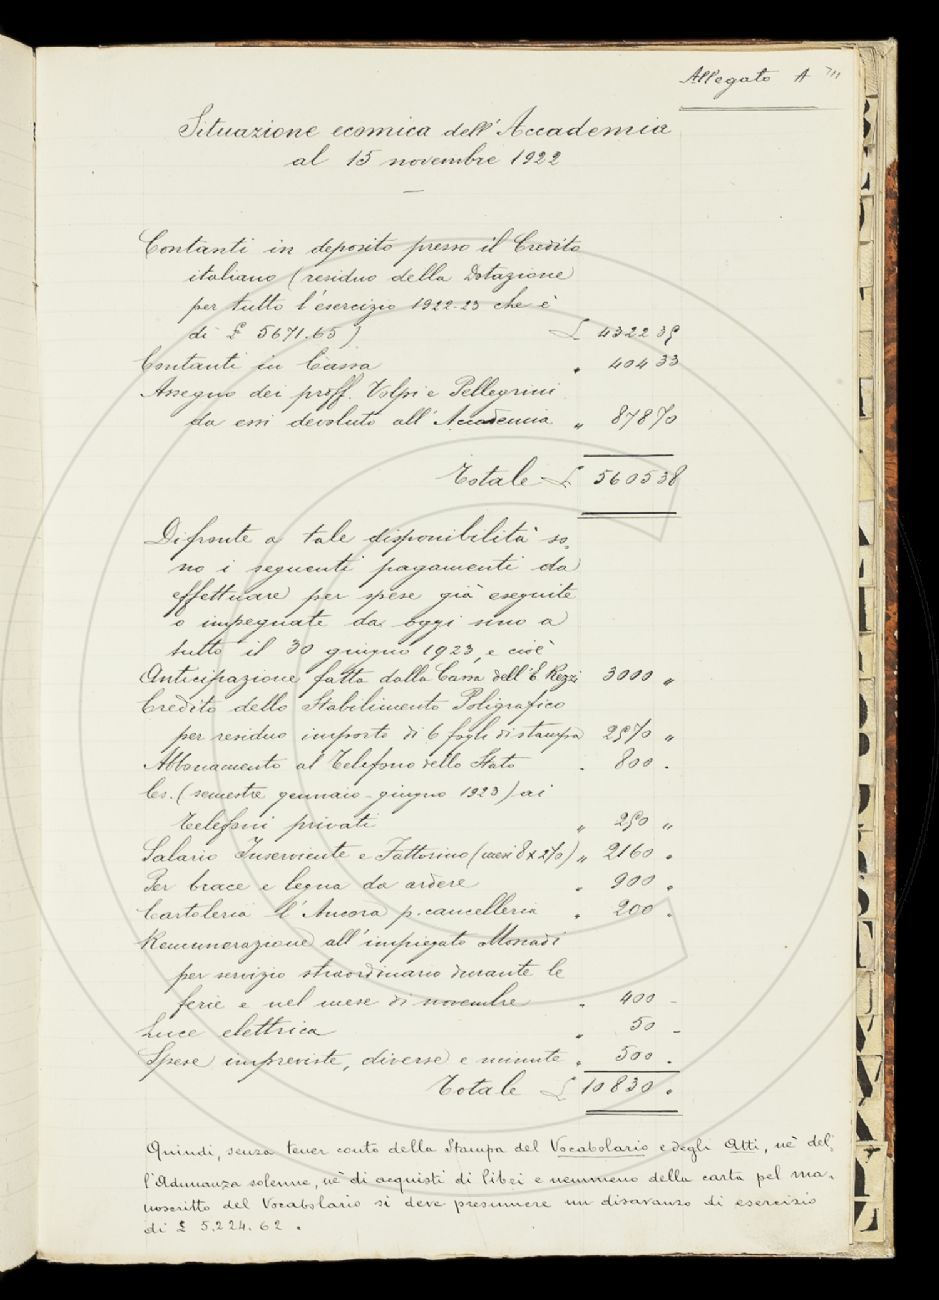 Allegato A
Situazione ecomica dell'Accademia
al 15 novembre 1922
Contanti in deposito presso il Credito
italiano (residuo della Dotazione
per tutto l'esercizio 1922-23 che è
di £ 5671.65) £ 4322 35
Contanti in Cassa " 404 33
Assegno dei proff. Volpi e Pellegrini
da essi devoluto all'Accademia " 878 70
Totale £ 5605 38
Difronte a tale disponibilità so-
no i seguenti pagamenti da
effettuare per spese già eseguite
o impegnate da oggi sino a
tutto il 30 giugno 1923, e cioè
Anticipazione fatta dalla Cassa dell'E. Rezzi 3000 "
Credito dello Stabilimento Poligrafico
per residuo importo di 6 fogli di stampa 2570 "
Abbonamento al Telefono dello Stato . 800 .
Cs. (semestre gennaio-giugno 1923) ai
Telefoni privati " 250 "
Salario Inserviente e Fattorino (mesi 8 x 270) " 2160 "
Per brace e legna da ardere " 900 "
Cartoleria l'Ancora p. cancelleria " 200 .
Remunerazione all'impiegato Monadi
per servizio straordinario durante le
ferie e nel mese di novembre " 400 -
Luce elettrica " 50 -
Spese impreviste, diverse e minute " 500 .
Totale £ 10830 "
Quindi, senza tener conto della Stampa del Vocabolario e degli Atti, nè del-
l'Adunanza solenne, nè di acquisti di libri e nemmeno della carta pel ma-
noscritto del Vocabolario si deve presumere un disavanzo di esercizio
di £ 5.224.62.